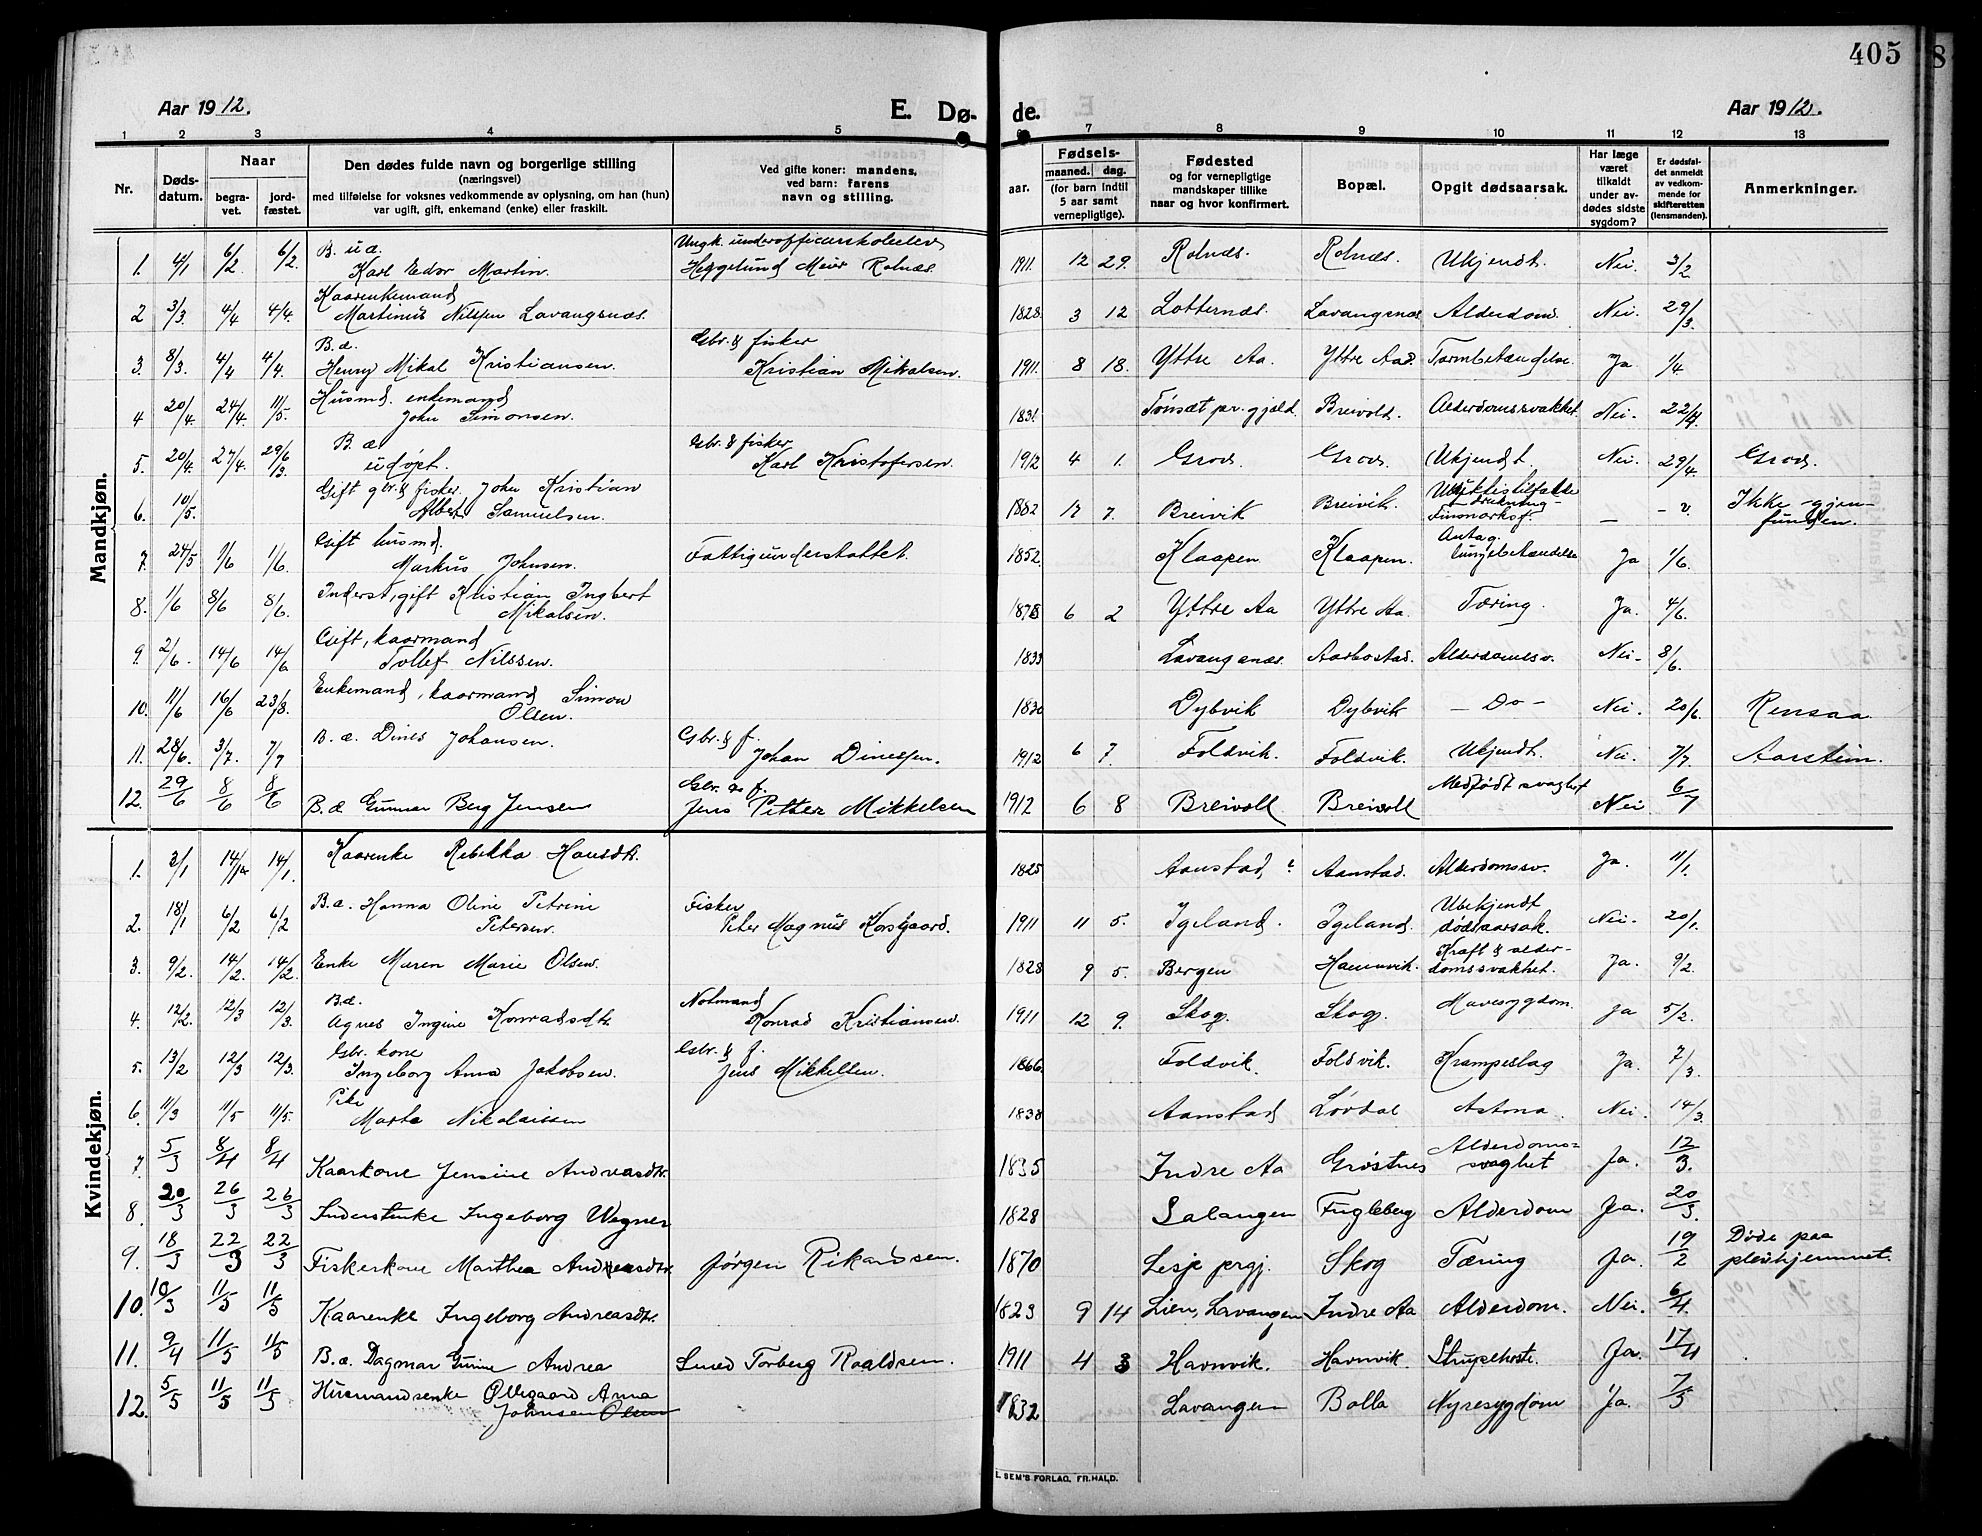 405
Aar 1912.
E. Dø-
de.
Aar 1912.
1 2 3 4 5 6 7 8 9 10 11 12 13
Nr.
Døds-
datum.
Naar
begra-
vet.
jord-
fæstet.
Den dødes fulde navn og borgerlige stilling
(næringsvei)
med tilføielse for voksnes vedkommende av oplysning, om han (hun)
var ugift, gift, enkemand (enke) eller fraskilt.
Ved gifte koner: mandens,
ved barn: farens
navn og stilling.
Fødsels-
aar.
maaned. dag.
(for barn indtil
5 aar samt
vernepligtige).
Fødested
og for vernepligtige
mandskaper tillike
naar og hvor konfirmert.
Bopæl.
Opgit dødsaarsak.
Har læge
været
tilkaldt
under av-
dødes sidste
sygdom?
Er dødsfal-
det anmeldt
av vedkom-
mende for
skifteretten
(lensmanden).
Anmerkninger.
Mandkjøn.
B. u.æ. Ungk. underofficerskoleelev
1. 4/1 6/2 6/2. Karl Edor Martin. Heggelund Meier Rolnæs. 1911. 12 29. Rolnæs. Rolnæs. Ukjendt. Nei. 3/2
Kaarenkemand
2 3/3 4/4 4/4. Martinus Nilssen Lavangsnæs. 1828. 3 12 Lotternæs. Lavangsnæs Alderdom. Nei. 29/3.
B.æ. Gbr. & fisker
3. 8/3. 4/4 4/4. Henry Mikal Kristiansen. Kristian Mikalsen. 1911. 8 18. Yttre Aa. Yttre Aa. Tarmbetændelse Ja 1/4
Husmd. enkemand
4 20/4. 24/4. 11/5. John Simonsen. 1831. Tönsæt pr. gjeld. Breivold. Alderdomssvakhet Nei. 22/4.
B. æ. Gbr. & fisker
5. 20/4. 27/4. udöpt. Karl Kristofersen. 1912 4 1. Grov. Grov. Ukjendt. Nei. 29/4. Grov.
Gift gbr. & fisker. John Kristian
6. 10/5. Albert Samuelsen. 1882 7. Breivik Breivik. Ulykkestilfælde
drukning
Finmarks f. — - v. Ikke gjen-
funden.
Gift husmd.
7 24/5 1/6 1/6. Markus Johnsen. Fattigunderstöttet. 1852. Klaapen Klaapen. Antag.
lungebetændelse Ja 1/6.
Inderst, gift Kristian Ingbert
8. 1/6 8/6 8/6. Mikalsen. 1878 6 2 Yttre Aa Yttre Aa. Tæring. Ja. 4/6.
Gift, kaarmand
9. 2/6. 14/6 14/6 Tollef Nilssen. 1833 Lavangsnæs. Aarbostad. Alderdomssv. Nei- 8/6.
Enkemand, kaarmand Simon
10. 11/6 16/6 23/8. Olsen. 1830 Dybvik Dybvik — Do — Nei. 20/6. Rensaa.
11. 28/6. 3/7. 7/7 B. æ. Dines Johansen. Gbr. & f.
Johan Dinessen. 1912 6 7. Foldvik. Foldvik. Ukjendt. Nei. 7/7. Aarstein.
12. 29/6 8/6 8/6 B.æ Gunnar Berg Jensen Gbr. & f.
Jens Petter Mikkelsen 1912 6 8 Breivoll Breivoll Medfødt svaghet Nei 6/7
Kvindekjøn.
1. 3/1 14/1 Kaarenke Rebekka Hansdtr. 1825 Aanstad, Aanstad. Alderdomssv. Ja. 11/1.
2. 18/1 6/2 6/2 B.æ. Hanna Oline Petrine
Petersen. Fisker
Peter Magnus Korsgaard. 1911 11 5. Igeland. Igeland. Ubekjendt
dødsaarsak. Nei. 20/1.
3. 9/2. 14/2. 14/2. Enke Maren Marie Olsen. 1828 9 5. Bergen Hamnvik. Kraft & alder-
domssvakhet. Ja. 9/2
B.æ. Notmand
4. 12/2. 12/3 12/3. Agnes Ingine Konradsdtr. Konrad Kristiansen. 1911 12 9. Skog. Skog. Mavesygdom. Ja 5/2.
Gbr. kone Gbr. & f.
5. 13/2 12/3 12/3. Ingeborg Anna Jakobsen. Jens Mikkelsen. 1866. Foldvik. Foldvik. Krampeslag Ja. 7/3.
Pike
6. 11/3 11/5 11/5. Marta Nikolaissen 1838 Aanstad Lövdal Astma. Nei. 14/3.
7. 5/3 8/4 8/4 Kaarkone Jensine Andreasdtr. 1835 Indre Aa Grøstnes Alderdoms-
svaghet Ja. 12/3.
8. 20/3 26/3 26/3 Inderstenke Ingeborg Wegner 1828 Salangen Fugleberg Alderdom Ja. 20/3.
9. 18/3 22/3 22/3 Fiskerkone Marthea Andreasdtr. Jørgen Rikardsen. 1870 Lesje prgj. Skog Tæring Ja. 19/2 Døde paa
pleiehjemmet.
10. 10/3 11/5 11/5 Kaarenke Ingeborg Andreasdtr. 1823 9 14 Lien, Lavangen Indre Aa Alderdom. Nei. 6/4.
11. 9/4 11/5 11/5 B.æ. Dagmar Gurine Andrea Smed Torberg Roaldsen. 1911 4 3 Havnvik. Havnvik. Strupehoste. Ja. 17/4
12. 5/5 11/5 11/5 Husmandsenke Ollegaard Anna
Johnsen Olsen 1832 Lavangen Bolla Nyresygdom Ja. 7/5
E. SEM'S FORLAG, FR.HALD.